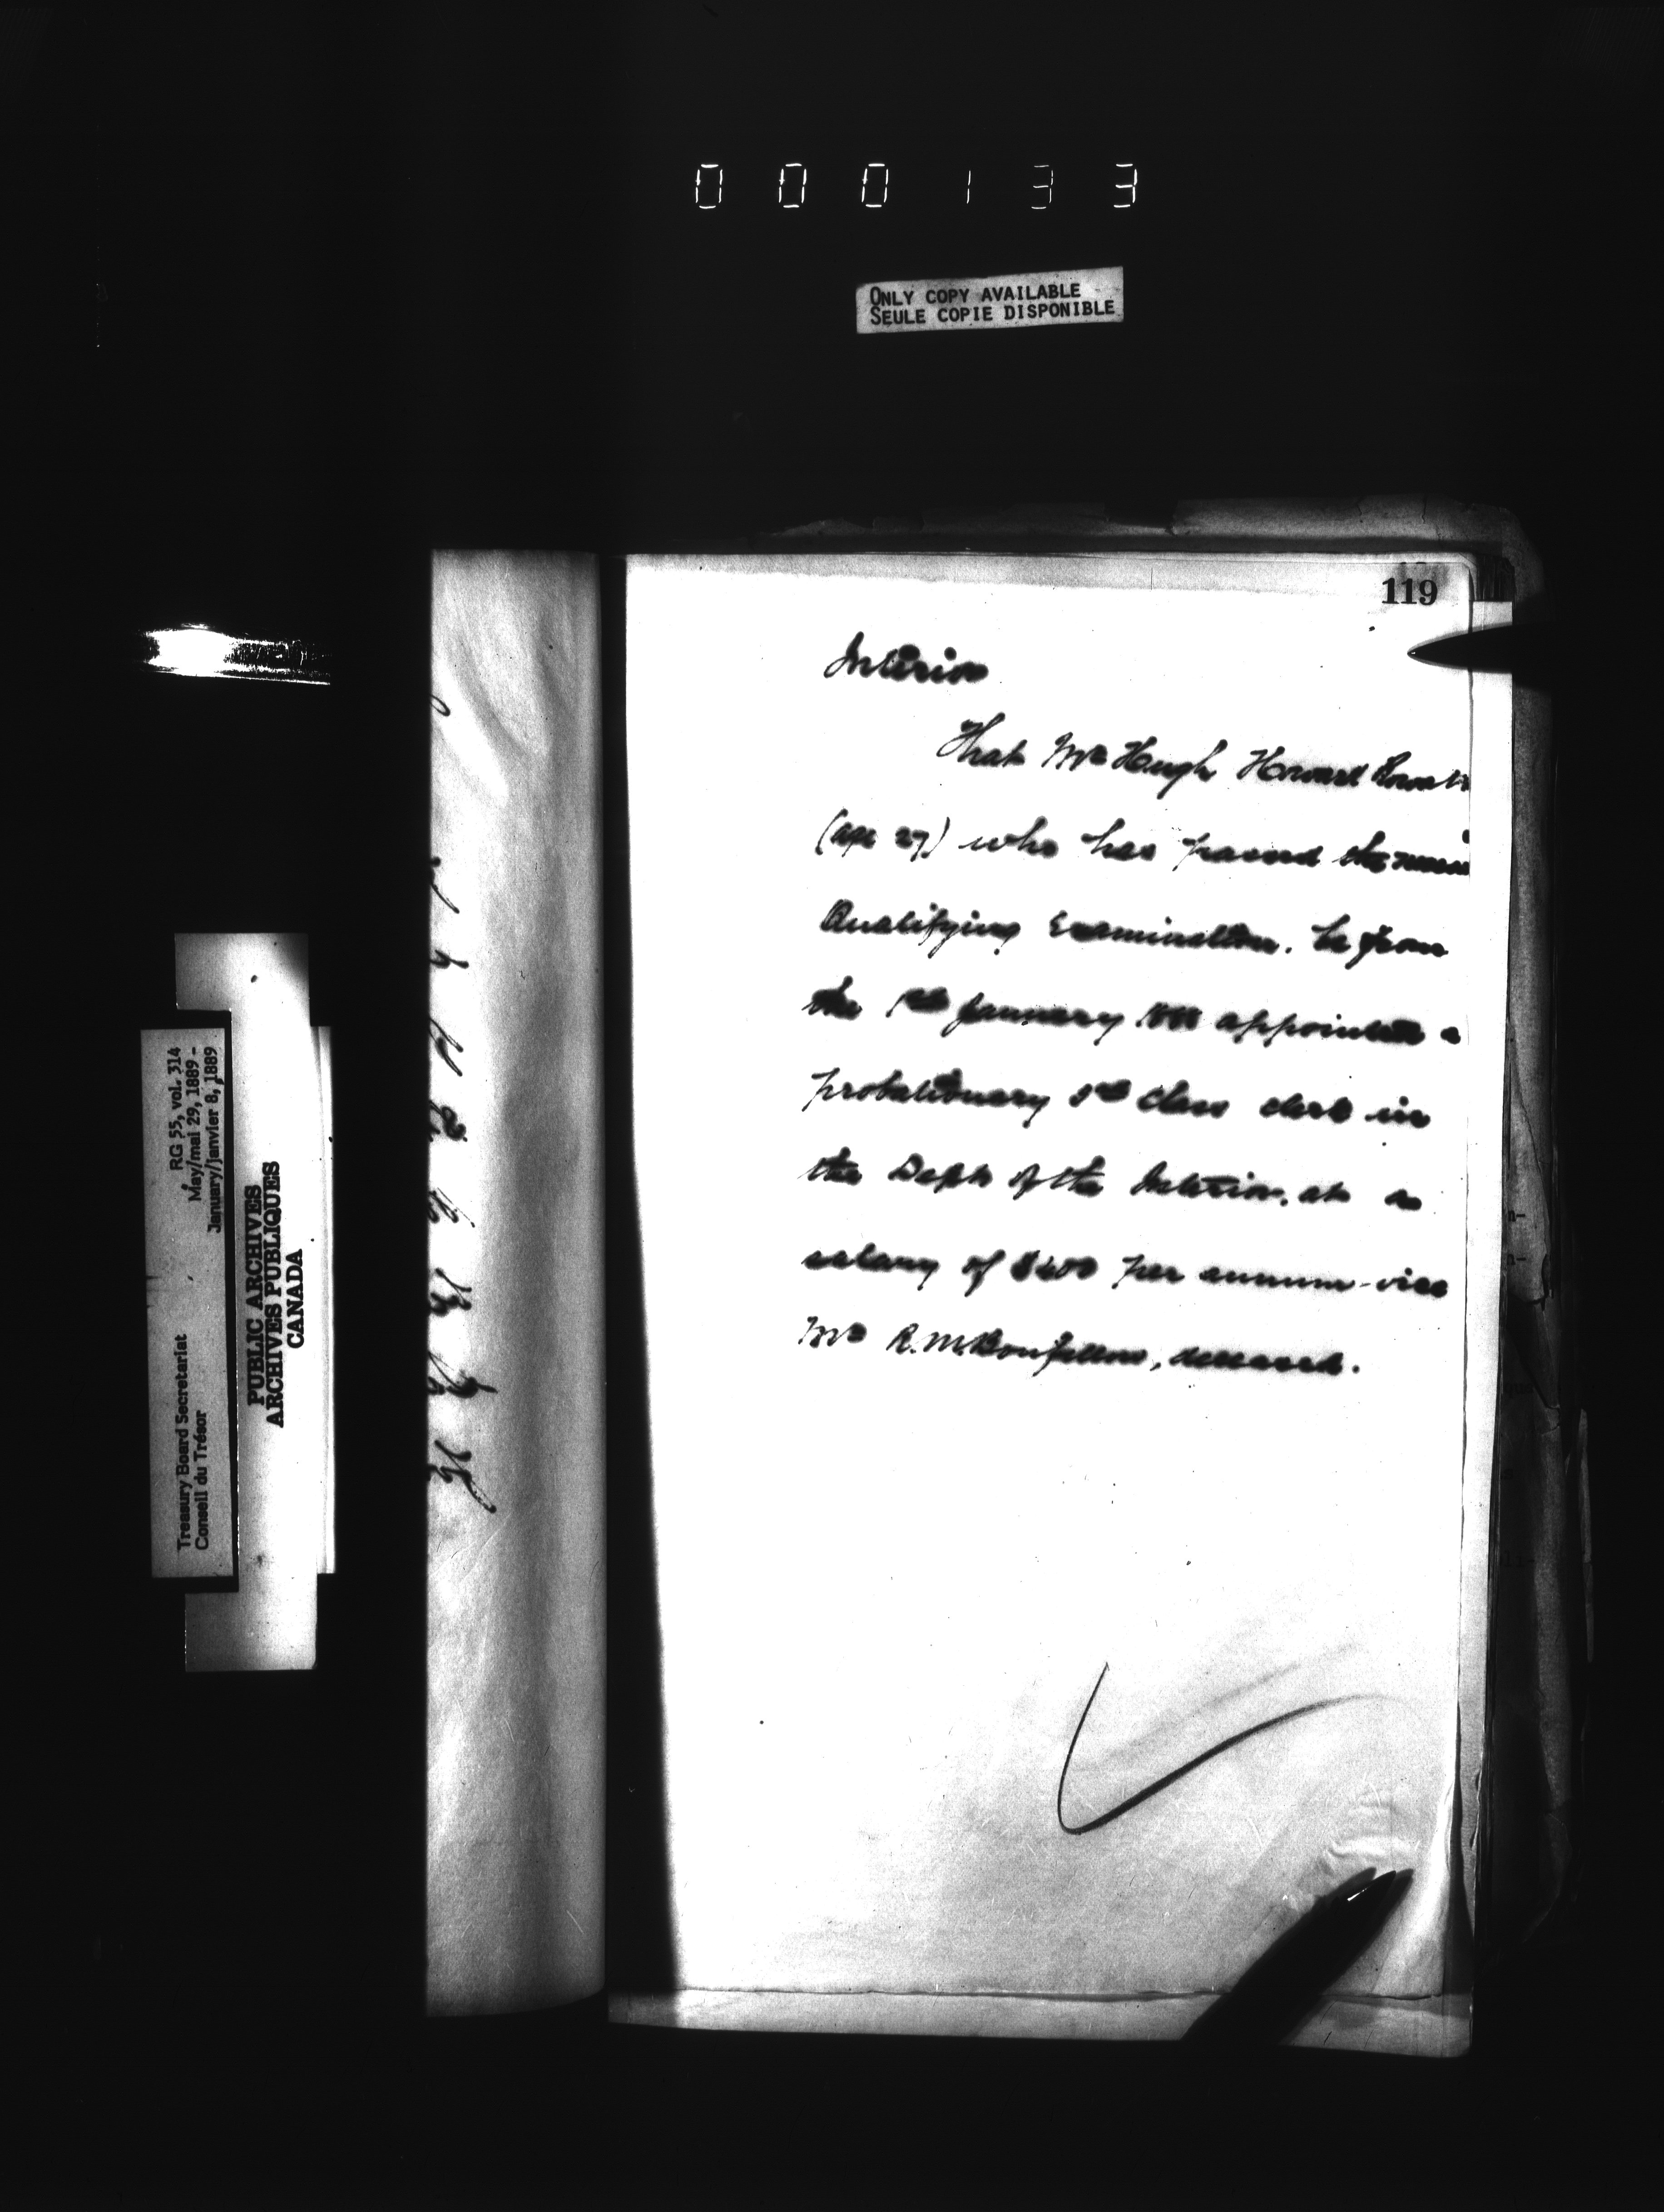 000133
ONLY COPY AVAILABLE
SEULE COPIE DISPONIBLE
RG 55, vol. 314
May/mai 29, 1889 -
January/janvier 8, 1889
Treasury Board Secretariat
Conseil du Trésor
PUBLIC ARCHIVES
ARCHIVES PUBLIQUES
CANADA
119
Interior
That Mr Hugh Howard
(age 27) who has passed the
Qualifying Examination. be from
the 1st January appointed a
probationary 3rd Class clerk in
the Dept of the Interior, at a
salary of $400 per annum vice
Mr R. M. deceased.